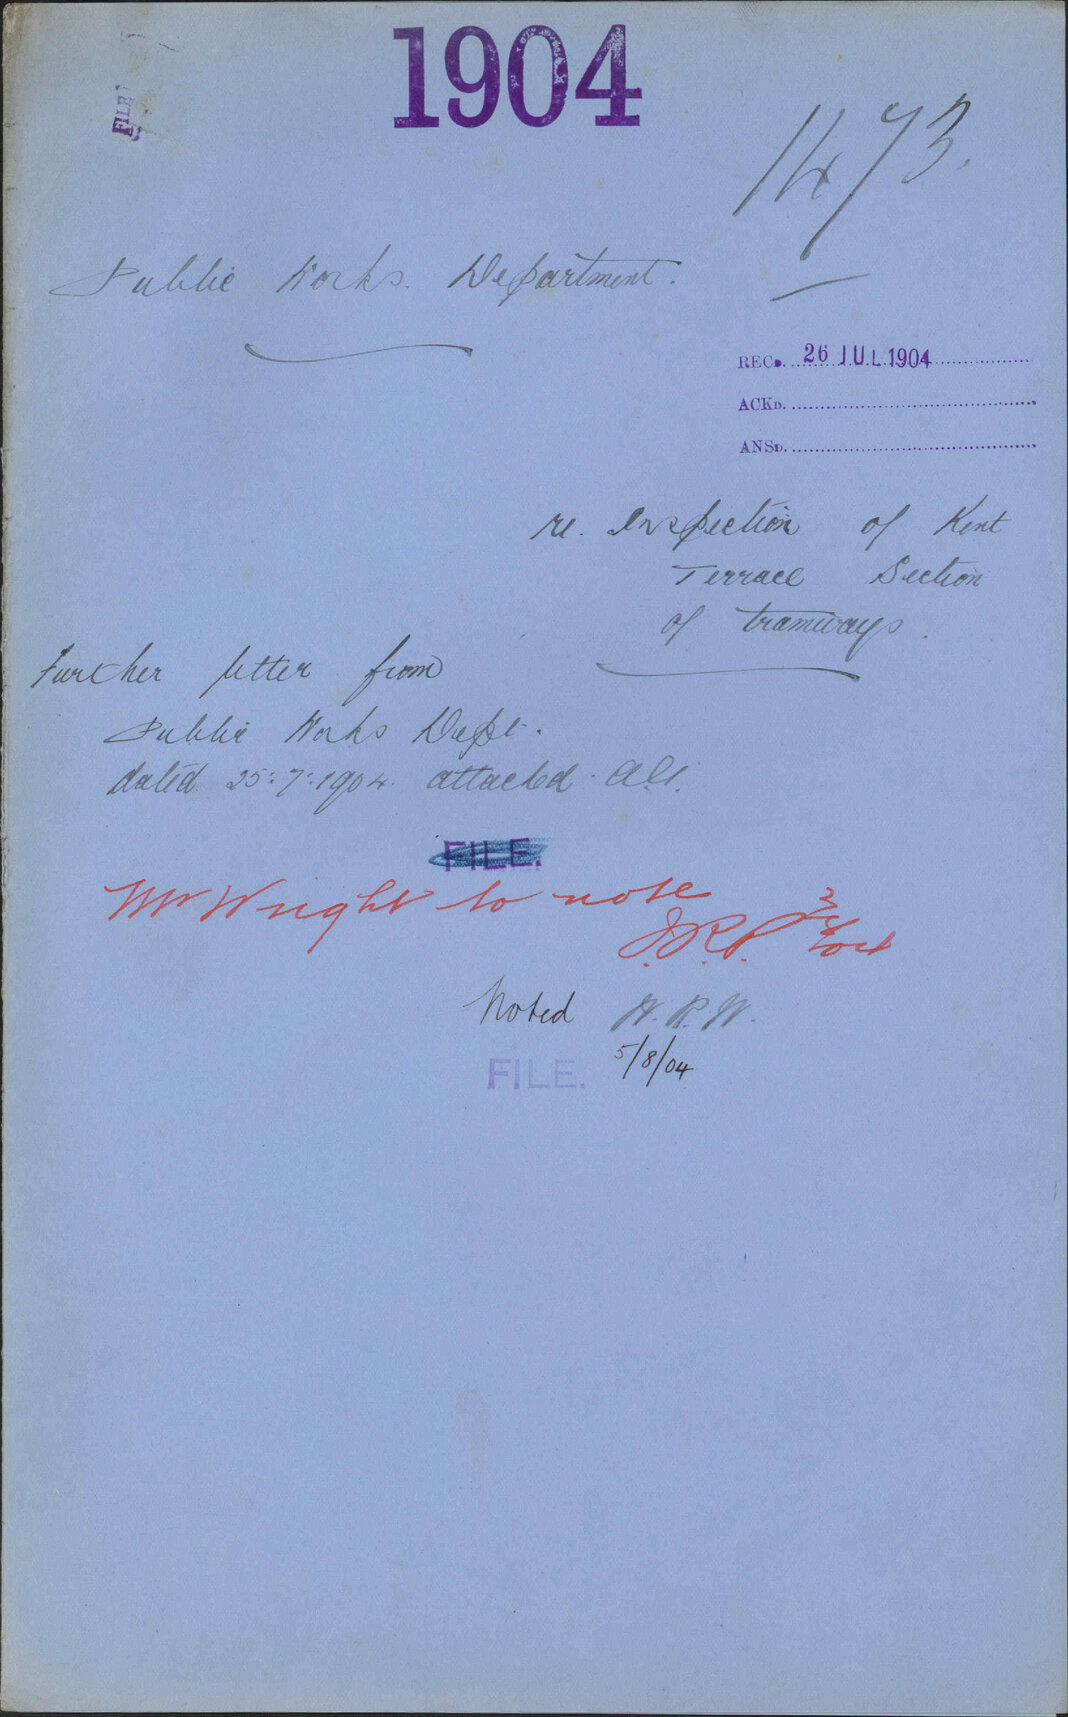 1904
FILE
1473.
Public Works. Department.
RECD. 26 JUL 1904
ACKD.
ANSD.
re. Inspection of Kent
Terrace Section
of tramways.
Further letter from
Public Works Dept.
dated 25.7.1904 attached.
FILE.
Mr Wright to note
Noted H.R.W.
5/8/04
FILE.